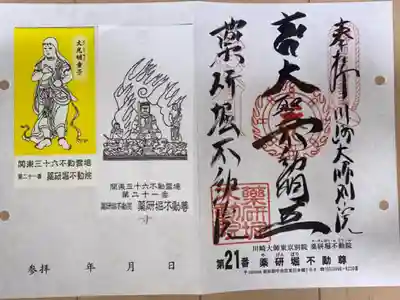 大光明童子
関東三十六不動霊場
第二十一番 薬研堀不動院
関東三十六不動霊場
第二十一番
薬研堀不動尊
参拝 年 月 日
奉拝
川崎大師別院
大聖不動明王
薬研堀不動院
川崎大師東京別院 薬研堀不動院
第21番 薬研堀不動尊
やげんぼり